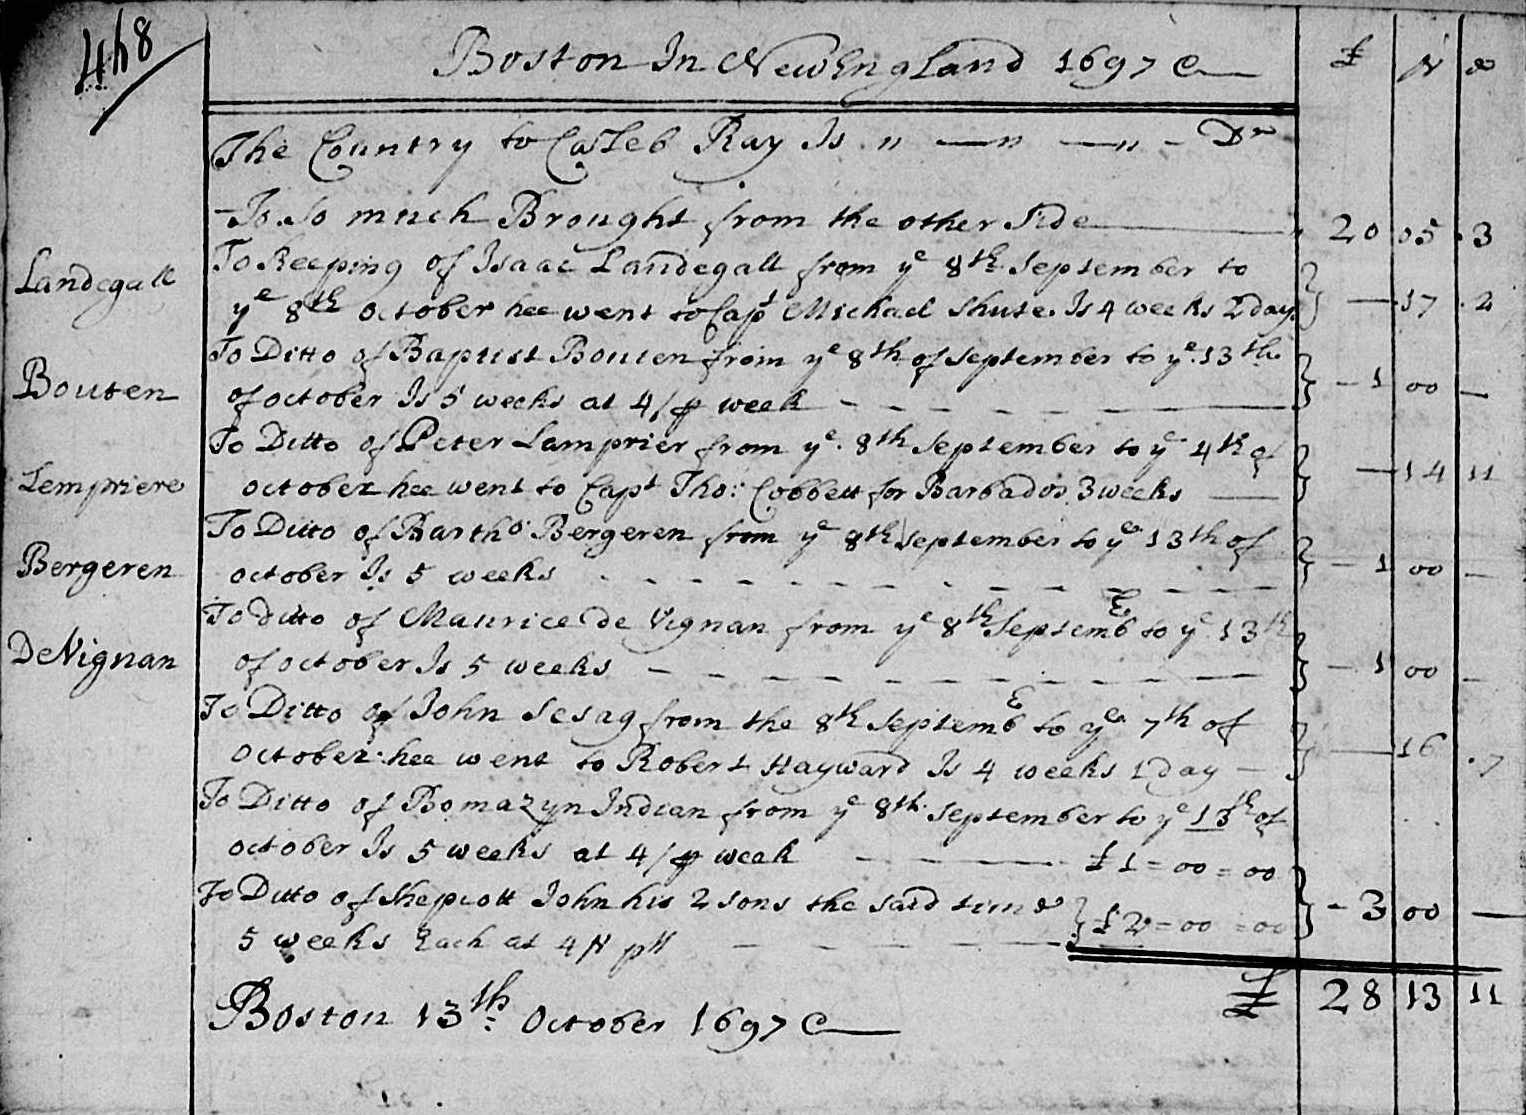 448
Boston In New England 1697
£ s d
The Country to Caleb Ray Is Dr
To So much Brought from the other Side 20 05 3
Landegall
To Keeping of Isaac Landegall from ye 8th September to
ye 8th october hee went to Capt Michael Shute. Is 4 weeks 2 days 17 2
Bouten
To Ditto of Baptist Bouten from ye 8th of September to ye 13th
of october Is 5 weeks at 4/ ⅌ week 1 00
To Ditto of Peter Lamprier from ye 8th September to ye 4th of
Lempriere
october hee went to Capt Tho: Cobbett for Barbados 3 weeks 14 11
To Ditto of Bartho Bergeren from ye 8th September to ye 13th of
Bergeren
october Is 5 weeks 1 00
To ditto of Maurice De Vignan from ye 8th Septembr to ye 13th
DeVignan
of october Is 5 weeks 1 00
To Ditto of John Sesag from the 8th Septembr to ye 7th of
October hee went to Robert Hayward Is 4 weeks 1 day 16 7
To Ditto of Bomazyn Indian from ye 8th September to ye 13th of
october Is 5 weeks at 4/ ⅌ week £1=00=00
To Ditto of Shepcott John his 2 sons the said time
5 weeks Each at 4/ £2=00=00 3 00
£ 28 13 11
Boston 13th: October 1697